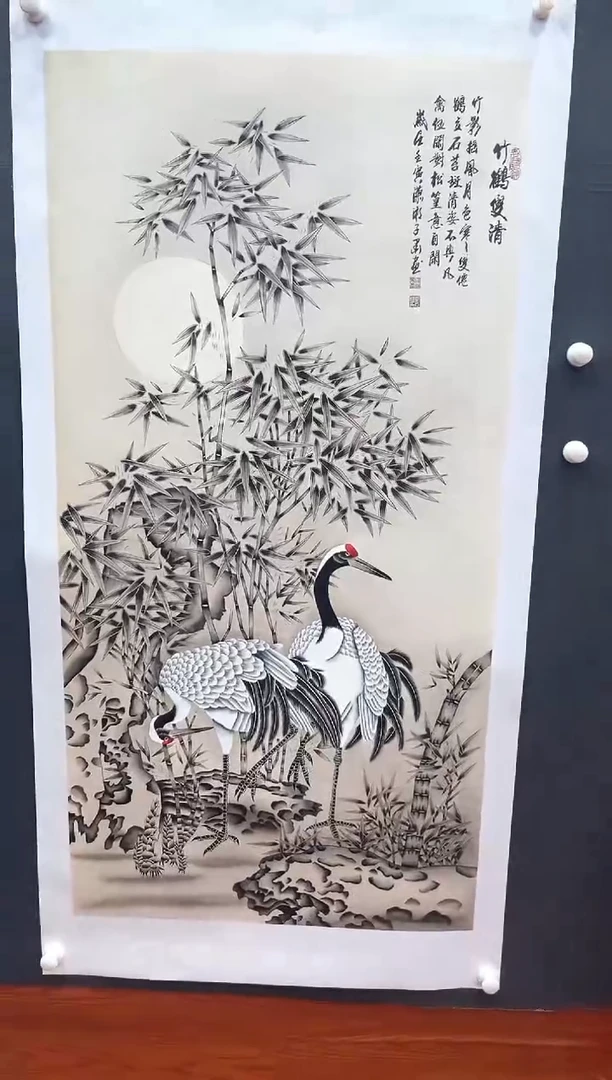 竹鶴雙清
竹影搖風月色寒一雙僊
鶴立石苔斑清姿不與凡
禽伍閑對松篁意自閑
歲在壬寅